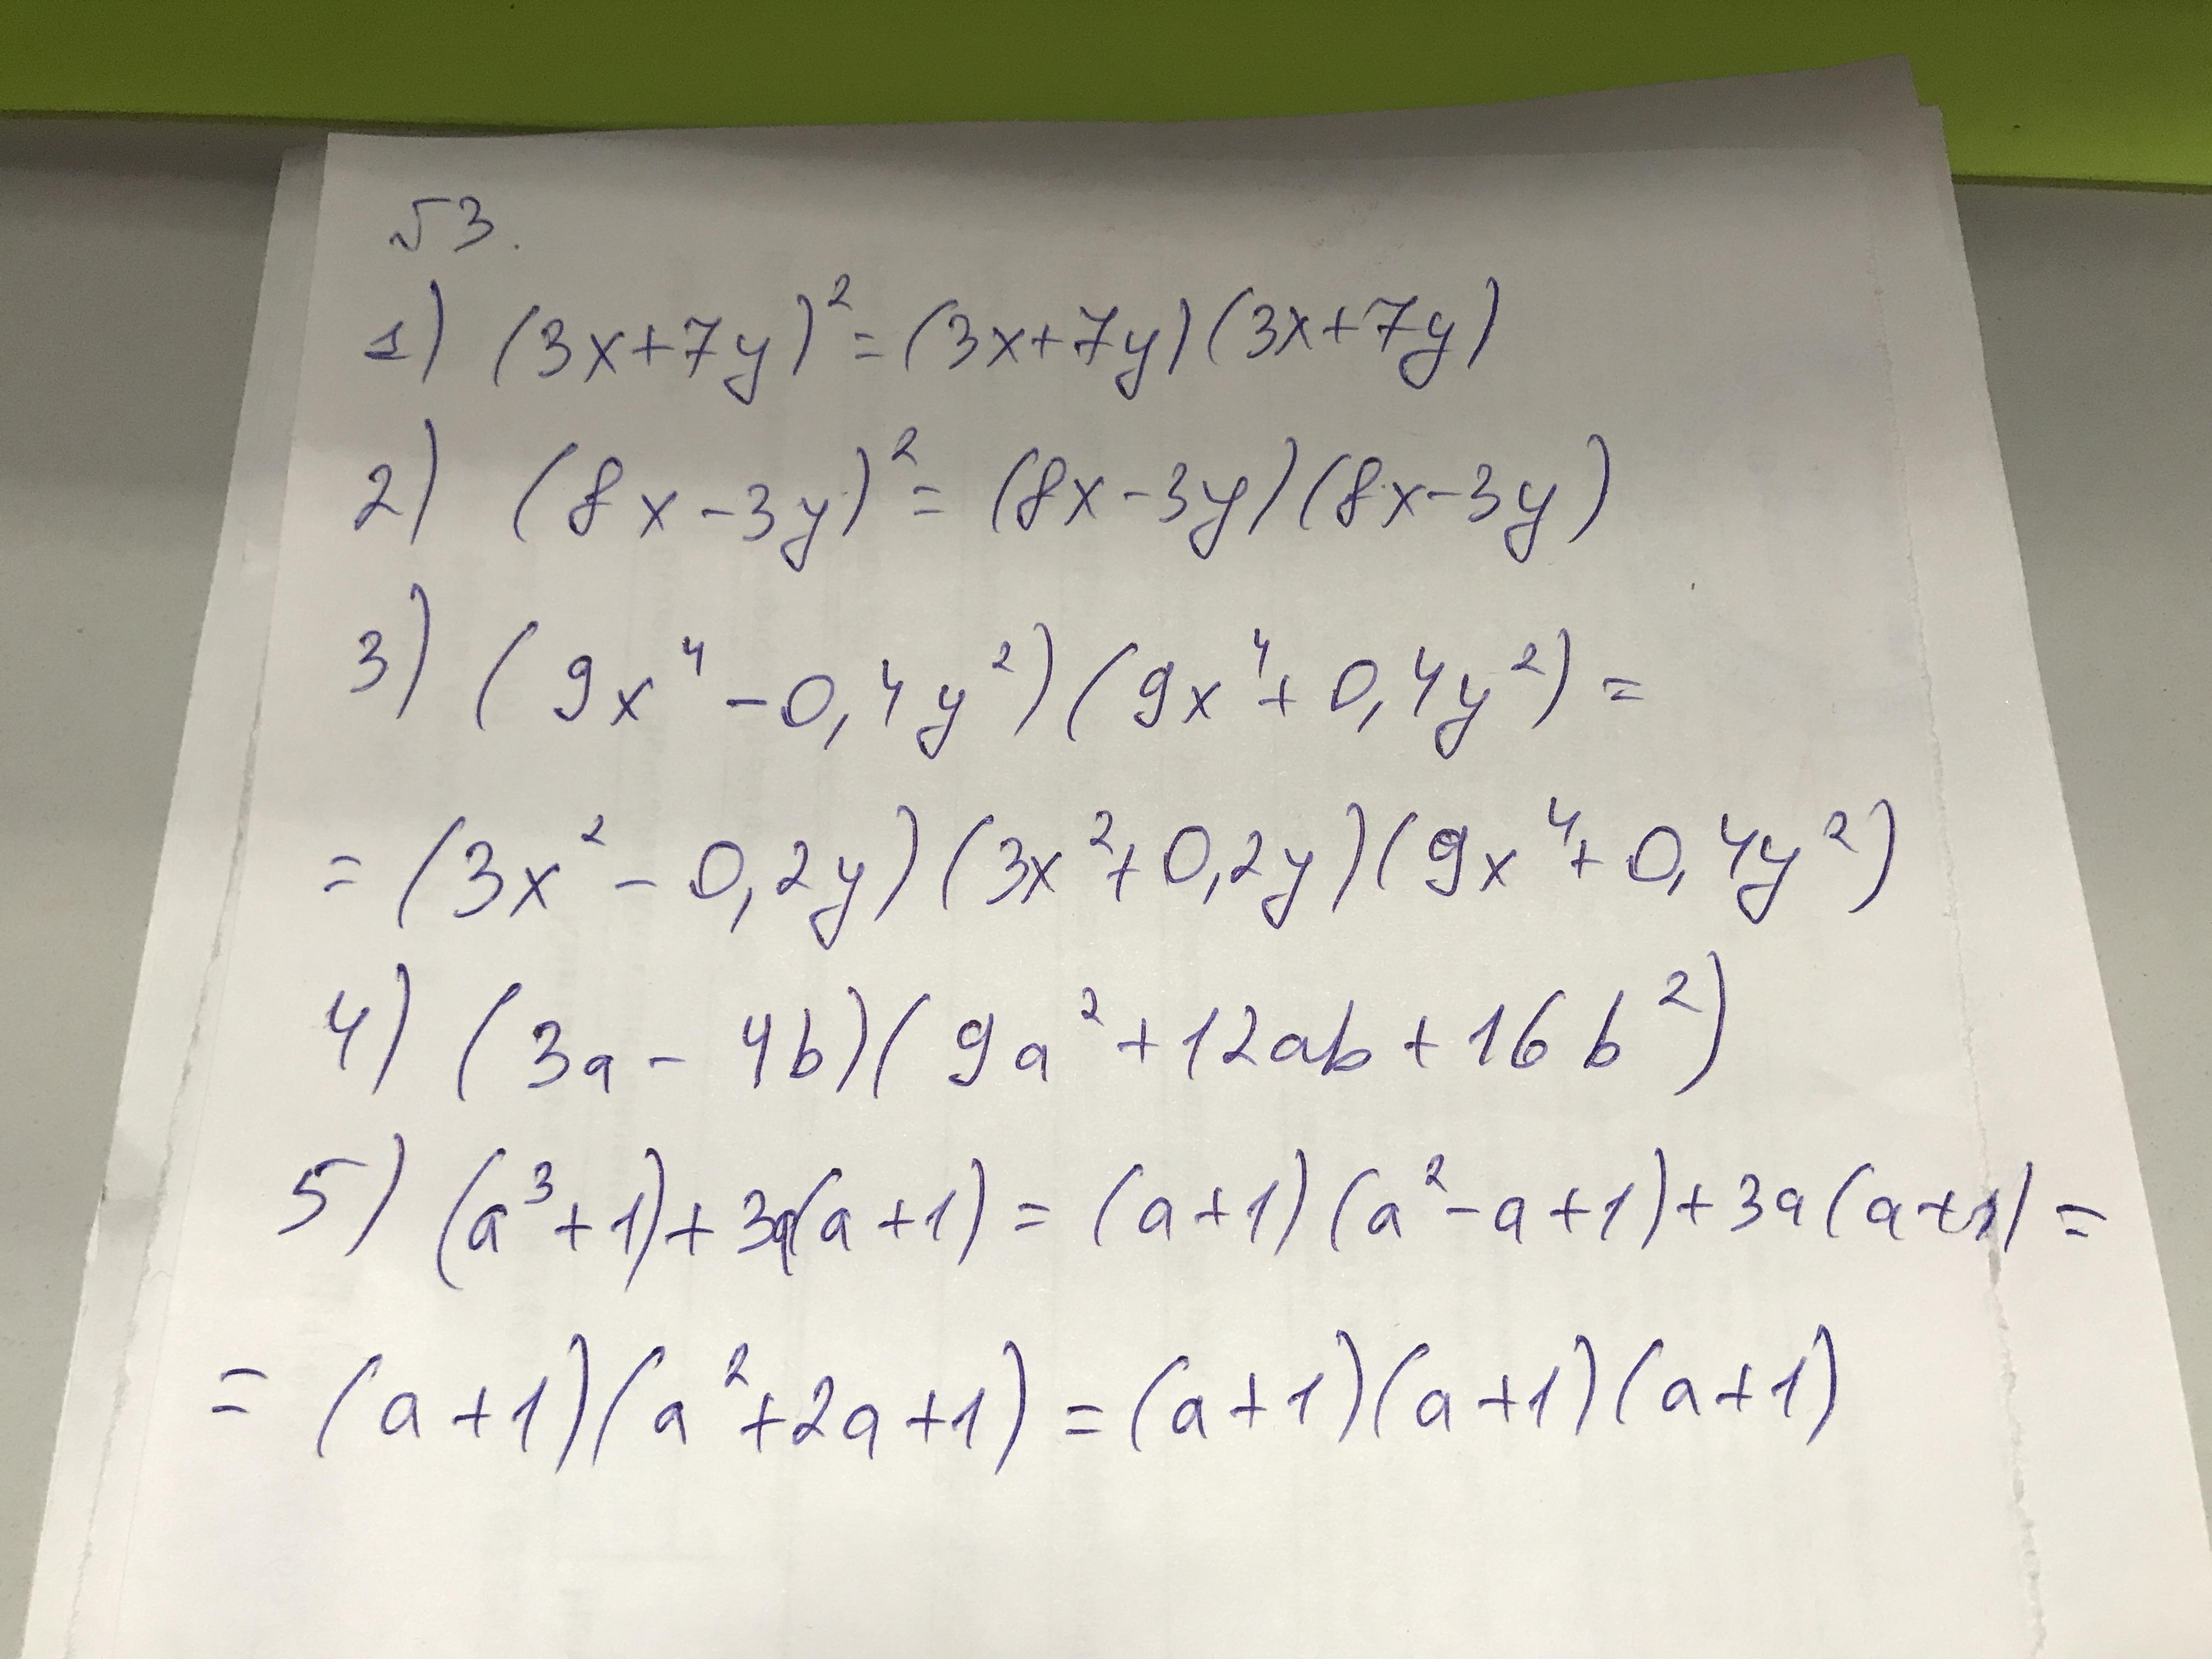 №3.
1) (3x+7y)²=(3x+7y)(3x+7y)
2) (8x-3y)²=(8x-3y)(8x-3y)
3) (9x⁴-0,4y²)(9x⁴+0,4y²)=
=(3x²-0,2y)(3x²+0,2y)(9x⁴+0,4y²)
4) (3a-4b)(9a²+12ab+16b²)
5) (a³+1)+3a(a+1)=(a+1)(a²-a+1)+3a(a+1)=
=(a+1)(a²+2a+1)=(a+1)(a+1)(a+1)